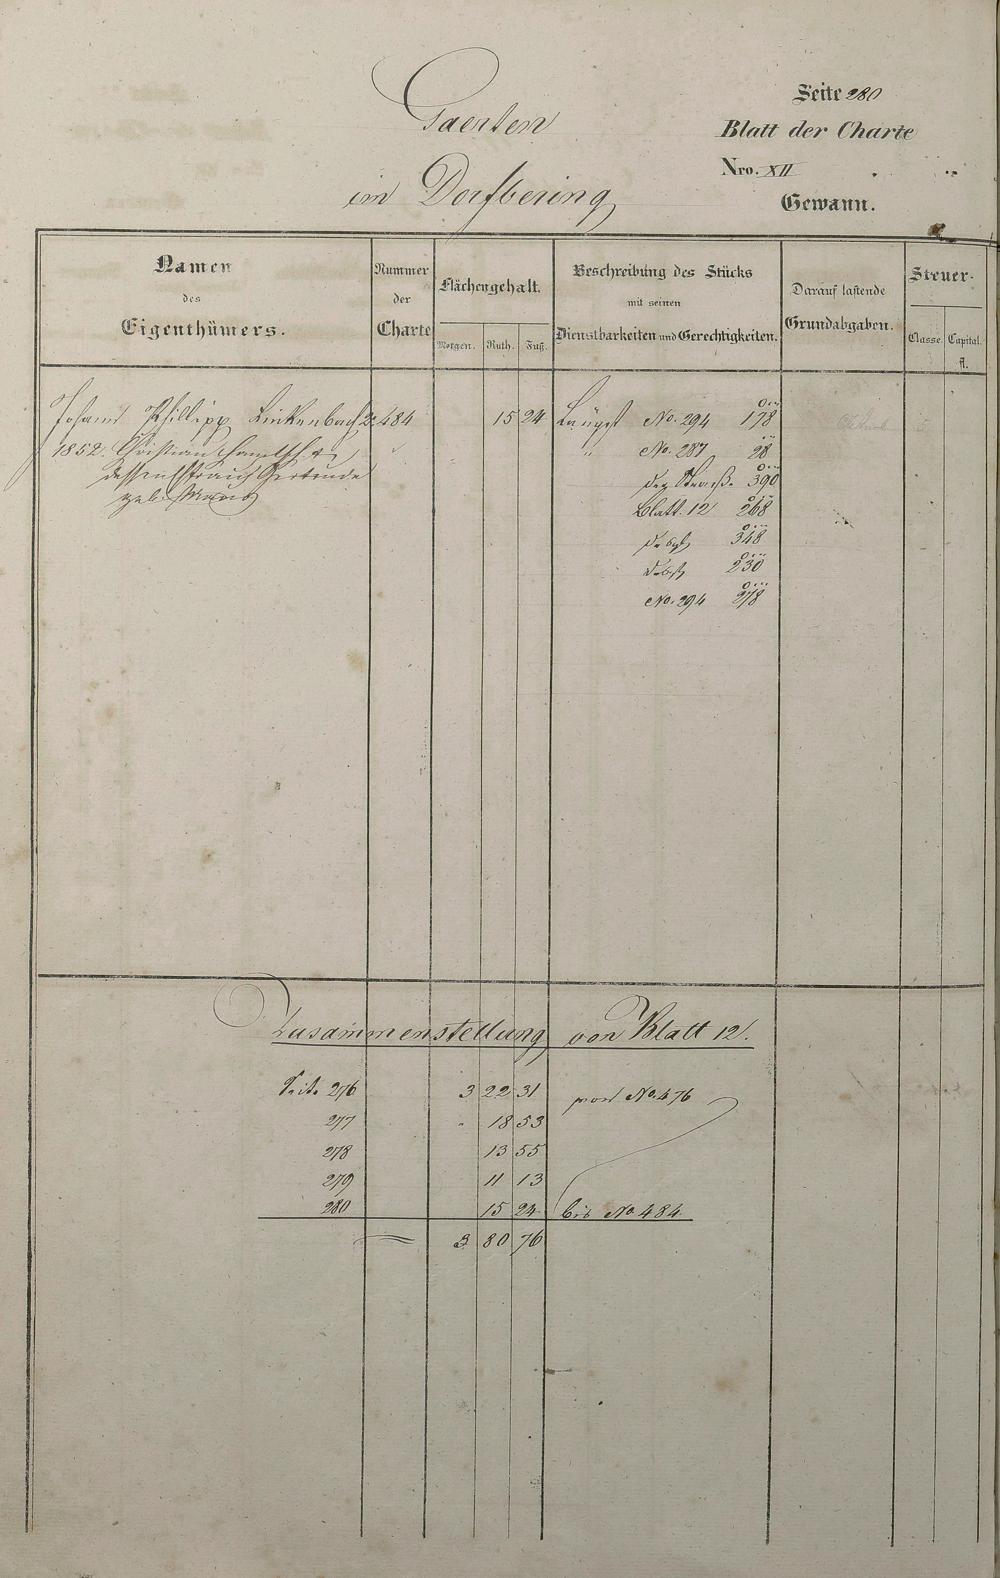 Gaerten
im Dorfbering
Seite 280
Blatt der Charte
Nro. XII
Gewann.
Namen
des
Eigenthümers.
Nummer
der
Charte
Flächengehalt.
Morgen. Ruth. Fuß.
Beschreibung des Stücks
mit seinen
Dienstbarkeiten und Gerechtigkeiten.
Darauf lastende
Grundabgaben.
Steuer-
Classe. Capital.
fl.
Johann Phillipp Linkenbach 2r 484 15 24 Längst No. 294 178
1852. Christian
dessen Ehefrau Gertrude
geb.
" No. 287 28
der Straß. 390
Blatt. 12 268
348
230
No. 294 278
Zusammenstellung von Blatt 12.
Seite 276 3 22 31 von No. 476
277 18 53
278 13 55
279 11 13
280 15 24 bis No. 484
3 80 76